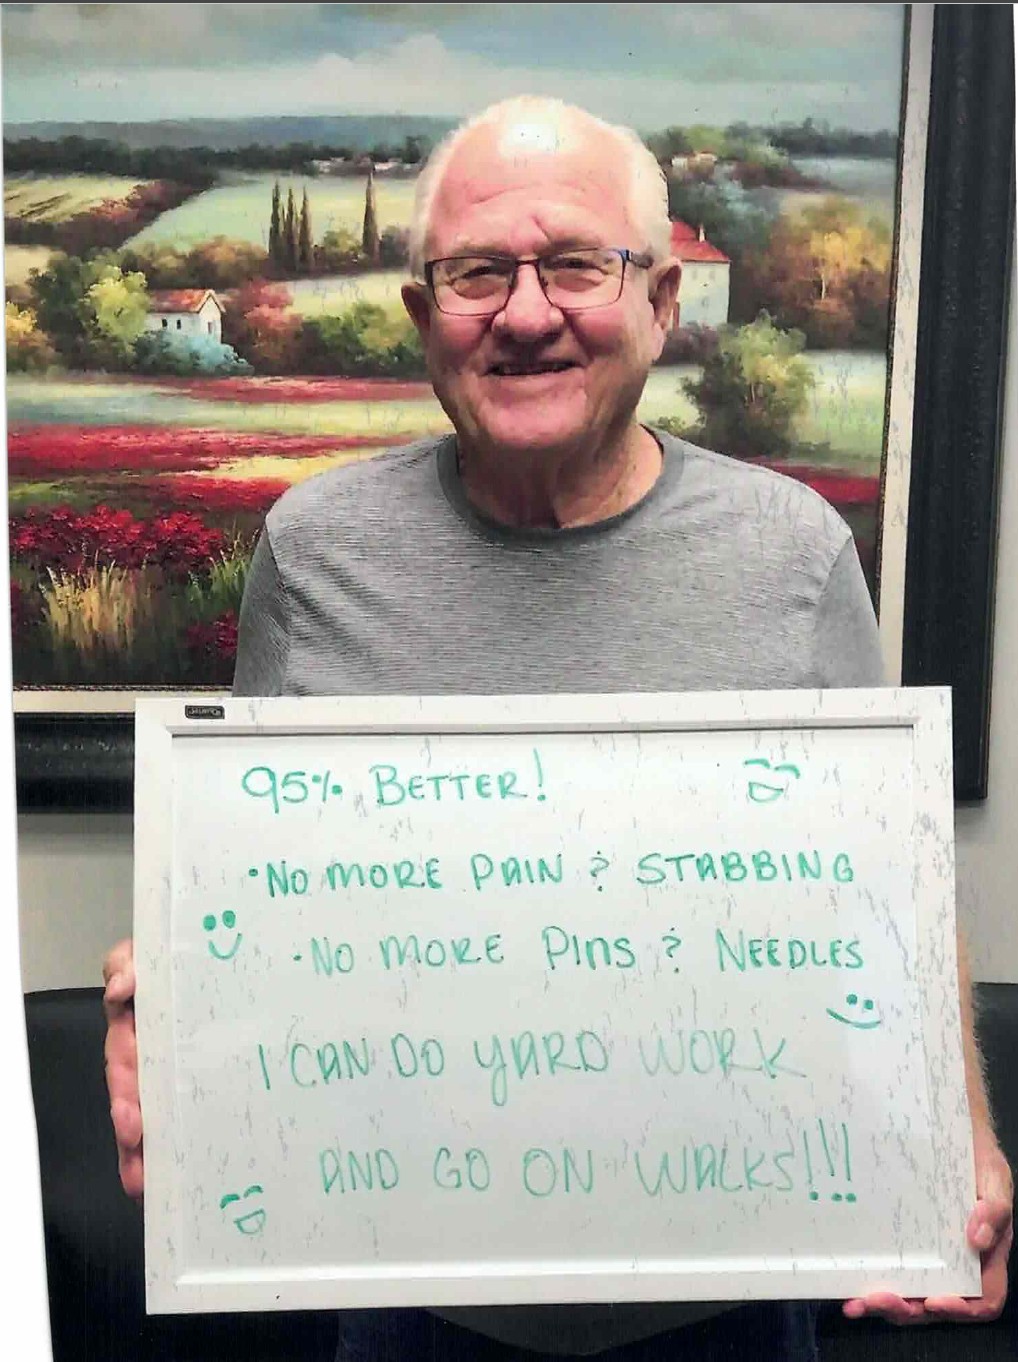 95% BETTER!
·NO MORE PAIN & STABBING
·NO MORE PINS & NEEDLES
I CAN DO YARD WORK
AND GO ON WALKS!!!